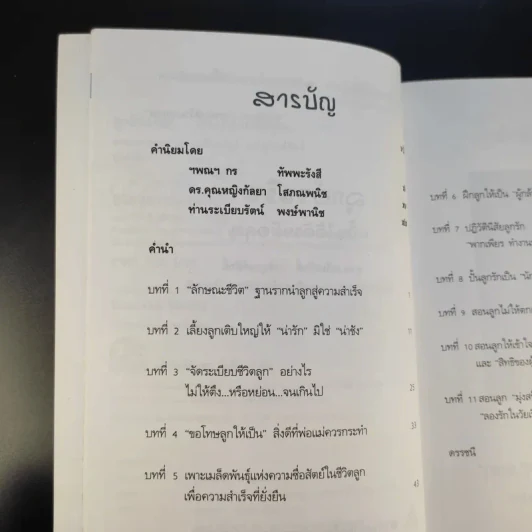 สารบัญ
คำนิยมโดย
ฯพณฯ กร ทัพพะรังสี
ดร.คุณหญิงกัลยา โสภณพนิช
ท่านระเบียบรัตน์ พงษ์พานิช
คำนำ
บทที่ 1 "ลักษณะชีวิต" ฐานรากนำลูกสู่ความสำเร็จ
บทที่ 2 เลี้ยงลูกเติบใหญ่ให้ "น่ารัก" มิใช่ "น่าชัง"
บทที่ 3 "จัดระเบียบชีวิตลูก" อย่างไร
ไม่ให้ตึง...หรือหย่อน...จนเกินไป
บทที่ 4 "ขอโทษลูกให้เป็น" สิ่งดีที่พ่อแม่ควรกระทำ
บทที่ 5 เพาะเมล็ดพันธุ์แห่งความซื่อสัตย์ในชีวิตลูก
เพื่อความสำเร็จที่ยั่งยืน 43
บทที่ 6 ฝึกลูกให้เป็น
บทที่ 7 ปฏิวัตินิสัยลูกรัก
"พากเพียร ทำงาน
บทที่ 8 ปั้นลูกรักเป็น
บทที่ 9 สอนลูกไม่ให้ตก
บทที่ 10 สอนลูกให้เข้าใจ
และ
บทที่ 11 สอนลูก
ดรรชนี